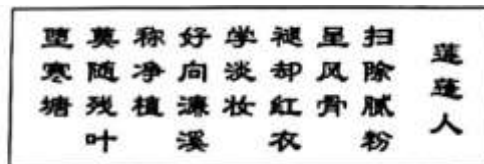 莲蓬人
扫除腻粉
呈风骨
褪却红衣
学淡妆
好向濂溪
称净植
莫随残叶
堕寒塘